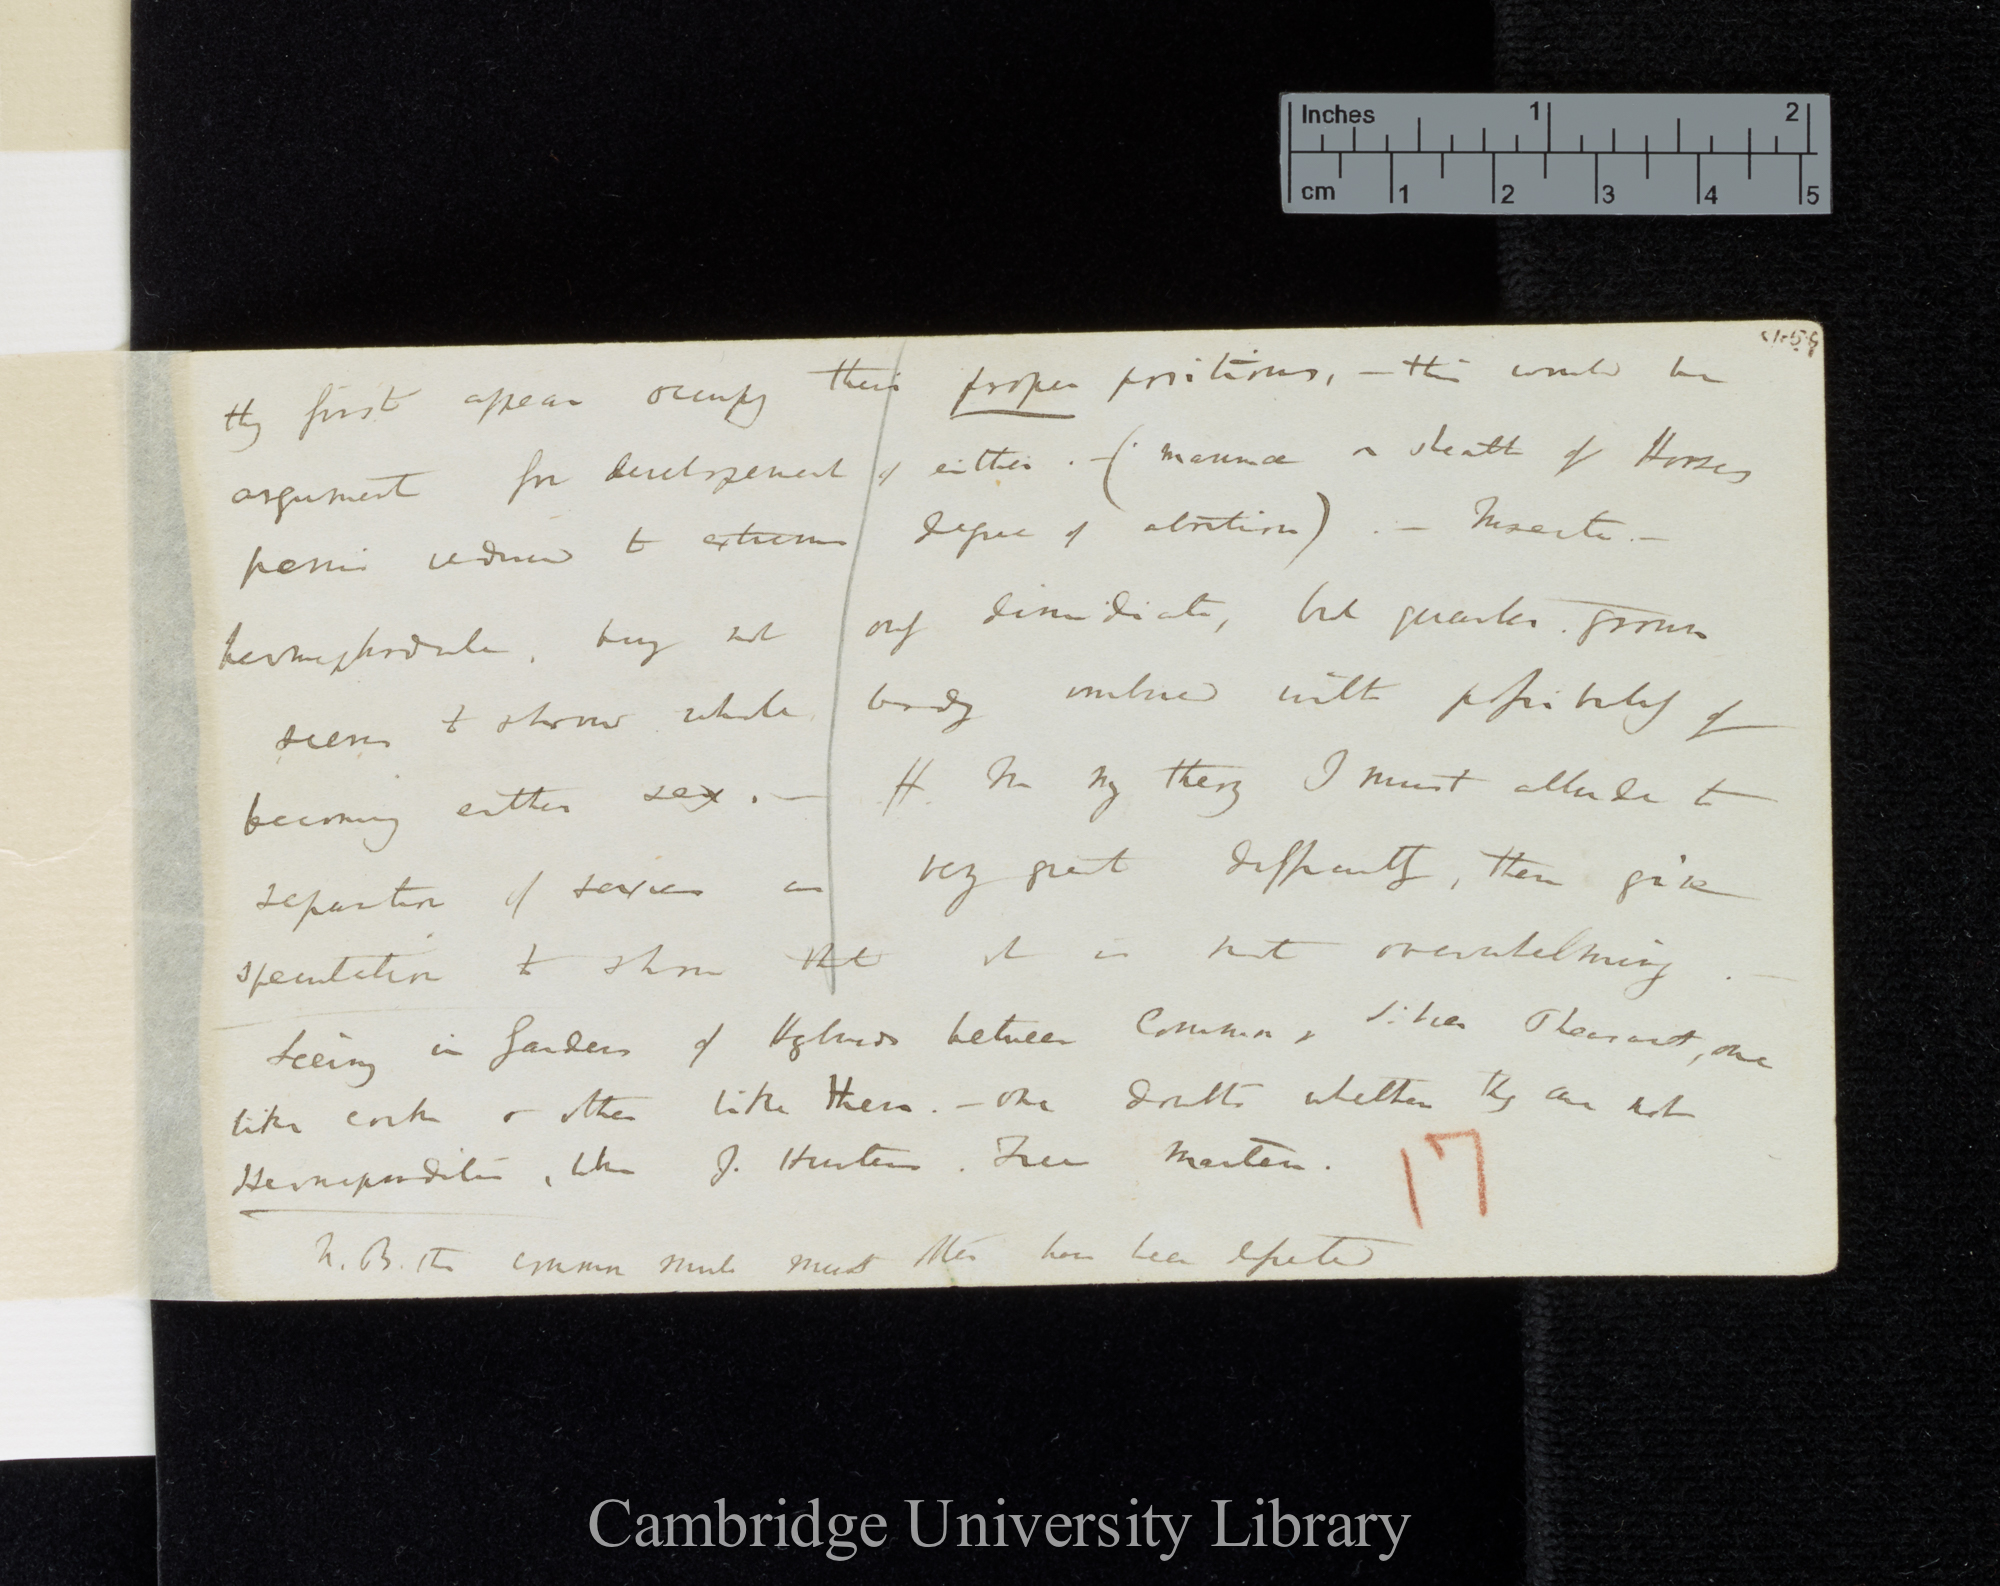 Inches 1 2
cm 1 2 3 4 5
they first appear occupy their proper positions, — this would be
argument for developement of either. — (mammae in sheath of Horses
penis reduced to extreme degree of abortion). — Insects. —
hermaphrodite, being not only dimidiate, but quarter-grown
seems to show whole body imbued with possibility of
becoming either sex. — In my theory I must allude to
separation of sexes as very great difficulty, then give
speculation to show that it is not overwhelming. —
Seeing in Gardens of Hybrids between Common & Silver Pheasant, one
like cock & other like Hen. — one doubts whether they are not
Hermaphrodites, like J. Hunters. Free Marten.
N.B. the common mule must often have been dissected
17
Cambridge University Library